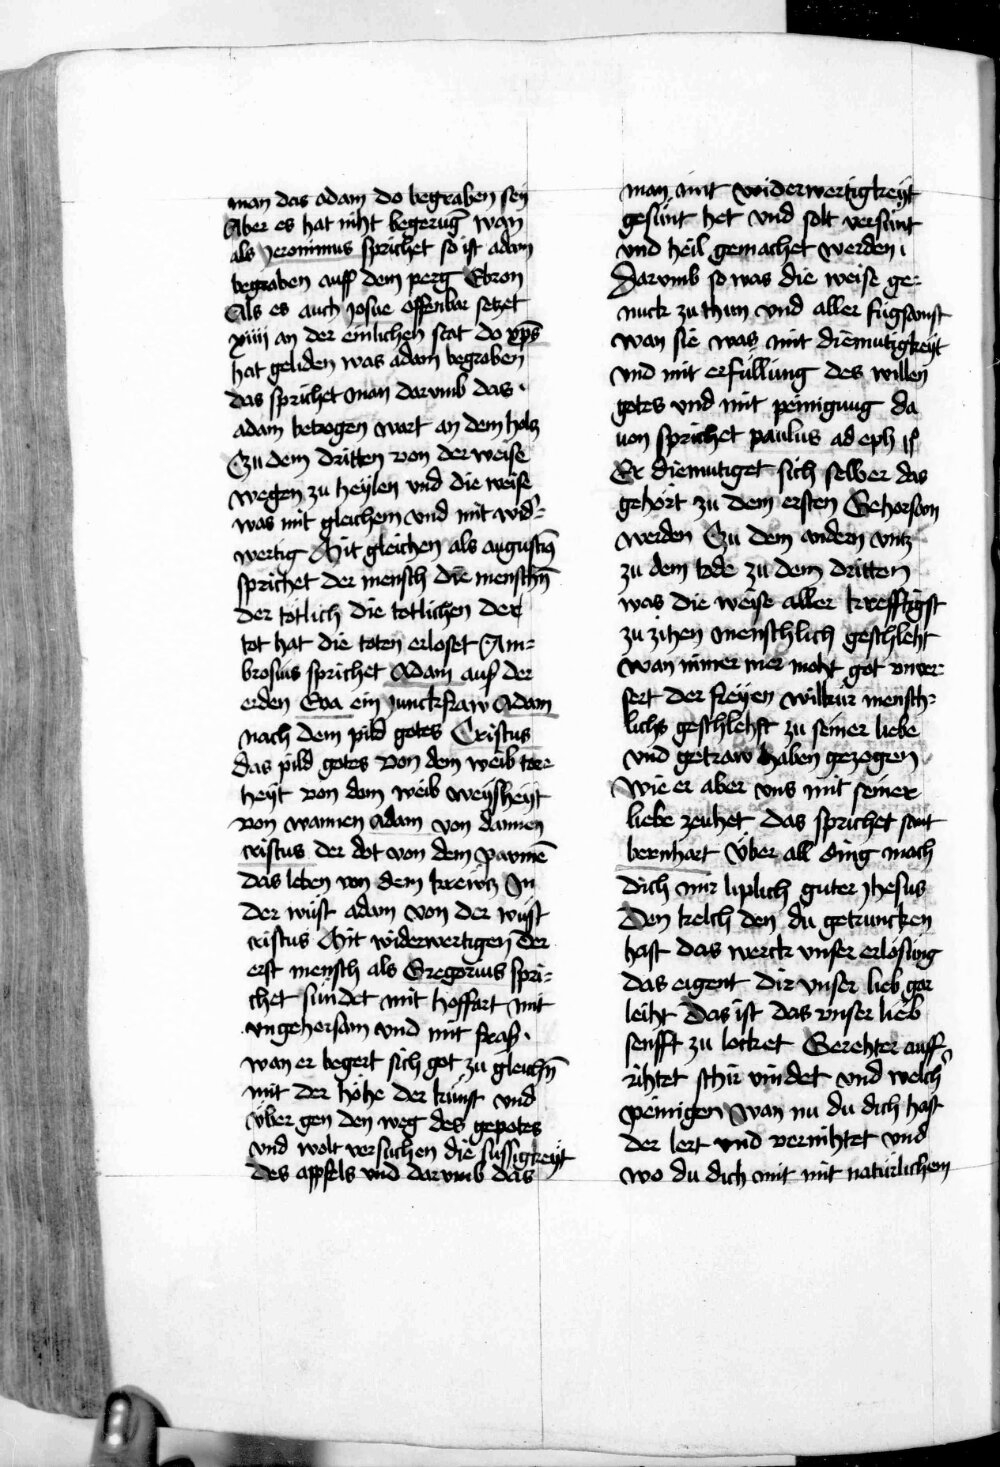 man das adam do begraben sey
Aber es hat niht begeruḡ wan
als Jeronimus sprichet so ist adam
begraben auff dem perg Ebron
Als es auch Josue offenbar setzet
xiiij an der einlichen stat do xp̄s
hat geliden was adam begraben
das sprichet man darumb das ·
adam betrogen wart an dem holtz
Czu dem dritten von der weise
wegen zu heylen vnd die weise
was mit gleichem vnd mit wid̄=
wertig Mit gleichen als augustīg
sprichet der mensch die mensch̄n
der tötlich die totlichen der
tot hat die toten erloset Am=
brosius sprichet Adam auß der
erden Eva ein Junckfraw Adam
nach dem pild gotes Cristus
das pild gotes von dem weib tore=
heyt von dem weib weysheyt
von wannen Adam von dannen
cristus der dot von dem pawmē
das leben von dem krewcz In
der wüst adam von der wüst
cristus Mit widerwertigen der
erst mensch als Gregorius spri=
chet sündet mit hoffart mit
vngehorsam vnd mit fraß ·
wan er begert sich got zu gleich̄n
mit der höhe der kunst vnd
über gen den weg des gepotes
vnd wolt versuchen die süssigkeyt
des appfels vnd darumb das
man mit widerwertigkeyt
gesünt het vnd solt versünt
vnd heil gemachet werden ·
Darumb so was die weise ge=
nuck zu thun vnd aller fügsamst
wan sie was mit diemutigkeyt
vnd mit erfüllung des willen
gotes vnd mit peinigung da
uon sprichet paulus ad eph
Er diemutiget sich selber das
gehört zu dem ersten Gehorsam
werden Czu dem andern vntz
zu dem tode zu dem dritten
was die weise aller krefftigst
zu zihen menschlich geschleht
wan nimer mer moht got vnver
sert der freyen wilkür mensch=
lichs geschlehst zu seiner liebe
vnd getraw haben gezogen
Wie er aber vns mit seiner
liebe zeuhet das sprichet sant
bernhart Über all ding mach
dich mir liplich guter Jhesus
Den kelch den du getruncken
hast das werck vnser erlösung
das eigent dir vnser lieb gar
leiht Das ist das vnser lieb
senfft zu locket Gerehter auff=
rihtet schir vindet vnd welch̄
peinigen Wan nu du dich hast
der lert vnd vernihtet vnd
wo du dich mit mit natürlichem